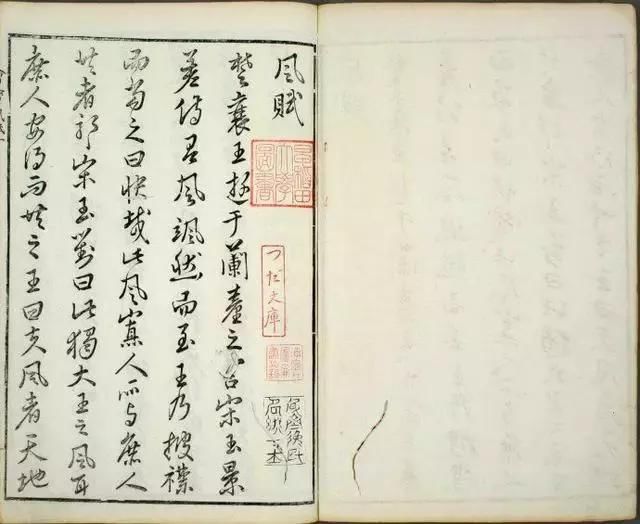 風賦
楚襄王遊于蘭臺之宮宋玉景
差侍有風颯然而至王乃披襟
而當之曰快哉此風寡人所與庶人
共者邪宋玉對曰此獨大王之風耳
庶人安得而共之王曰夫風者天地
早稻田
大學
圖書
つだ文庫